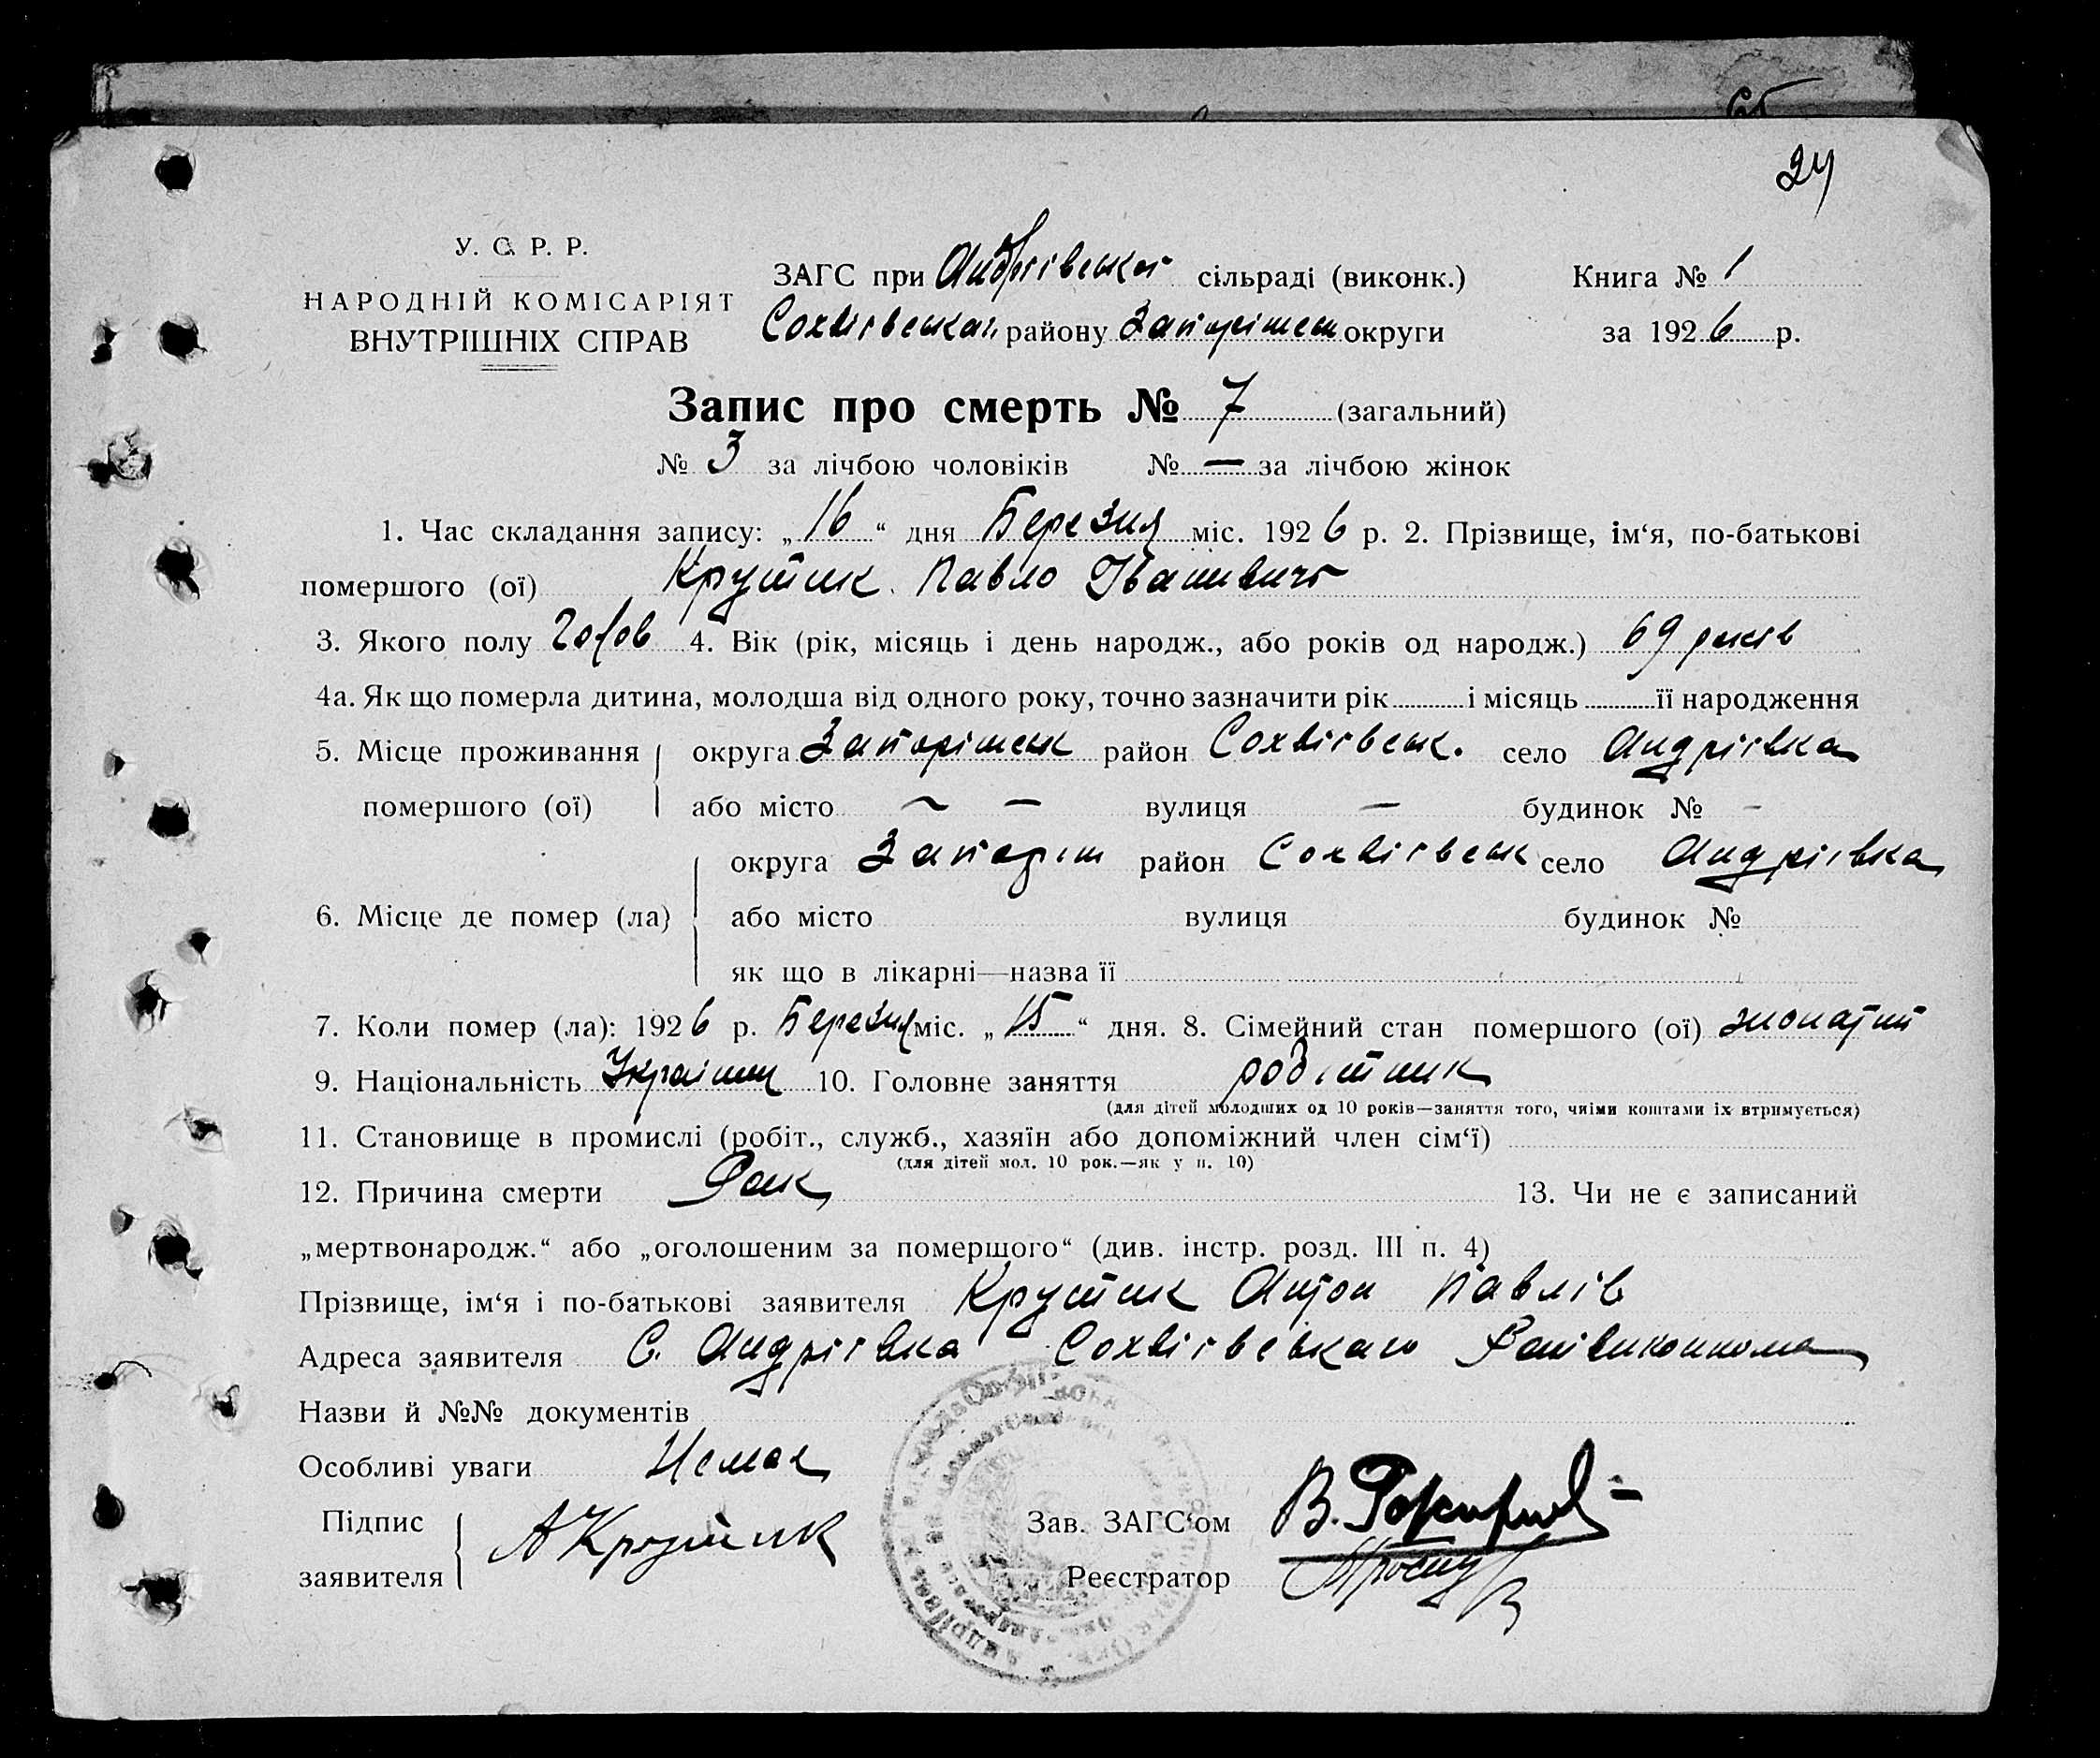 24
У. С. Р. Р.
НАРОДНІЙ КОМІСАРІЯТ
ВНУТРІШНІХ СПРАВ
ЗАГС при Андріївській сільраді (виконк.)
району Запоріжськ округи
Книга № 1
за 1926 р.
Запис про смерть № 7 (загальний)
№ 3 за лічбою чоловіків № — за лічбою жінок
1. Час складання запису: „16“ дня Березня міс. 1926 р. 2. Прізвище, ім‘я, по-батькові
помершого (ої) Крутик Павло Іванивичъ
3. Якого полу Чолов 4. Вік (рік, місяць і день народж., або років од народж.) 69 років
4а. Як що померла дитина, молодша від одного року, точно зазначити рік і місяць її народження
5. Місце проживання округа Запоріжськ район Софіївськ. село Андріївка
помершого (ої) або місто ~ — вулиця — будинок № -
округа Запоріж район Софіївськ село Андріївка
6. Місце де помер (ла) або місто вулиця будинок №
як що в лікарні—назва її
7. Коли помер (ла): 1926 р. Березня міс. „15“ дня. 8. Сімейний стан помершого (ої) жонатий
9. Національність 10. Головне заняття робітник
(для дітей молодших од 10 років—заняття того, чиїми коштами їх втримується)
11. Становище в промислі (робіт., служб., хазяїн або допоміжний член сім‘ї)
(для дітей мол. 10 рок.—як у п. 10)
12. Причина смерти Рак 13. Чи не є записаний
„мертвонародж.“ або „оголошеним за помершого“ (див. інстр. розд. III п. 4)
Прізвище, ім‘я і по-батькові заявителя Крутик Антон Павлів
Адреса заявителя С. Андріївка Софіївськаго Райвиконкома
Назви й №№ документів
Особливі уваги Немає
Підпис
заявителя А Крутик
Зав. ЗАГС‘ом
Реєстратор